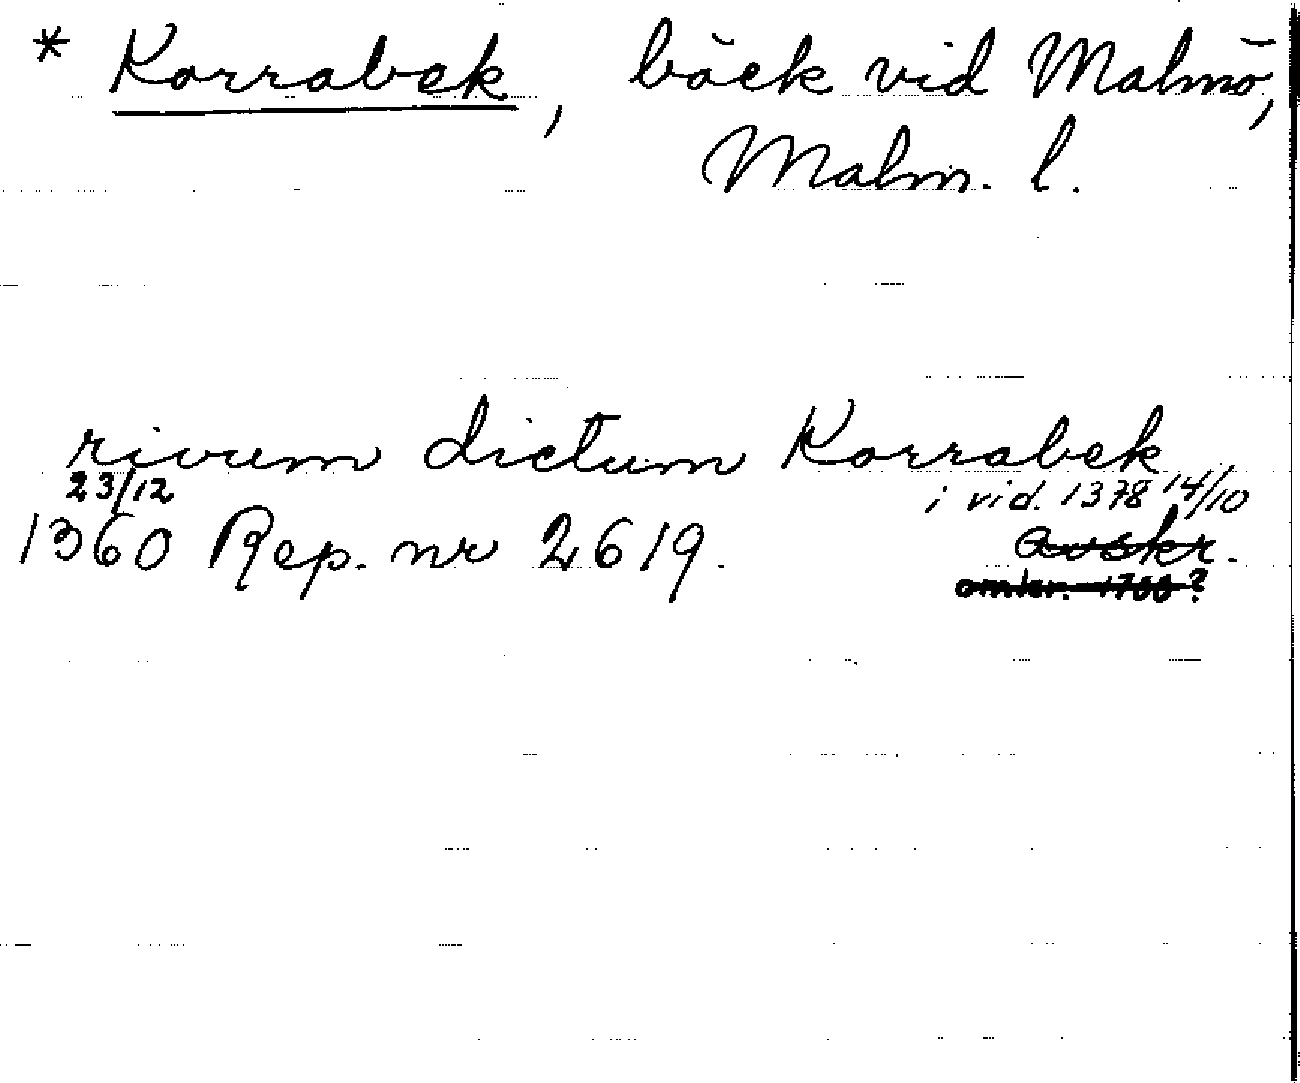 * Korrabek, bäck vid Malmö,
Malm. l.
rivum dictum Korrabek
23/12 i vid. 1378 14/10
1360 Rep. nr 2619. avskr.
omkr. 1700?